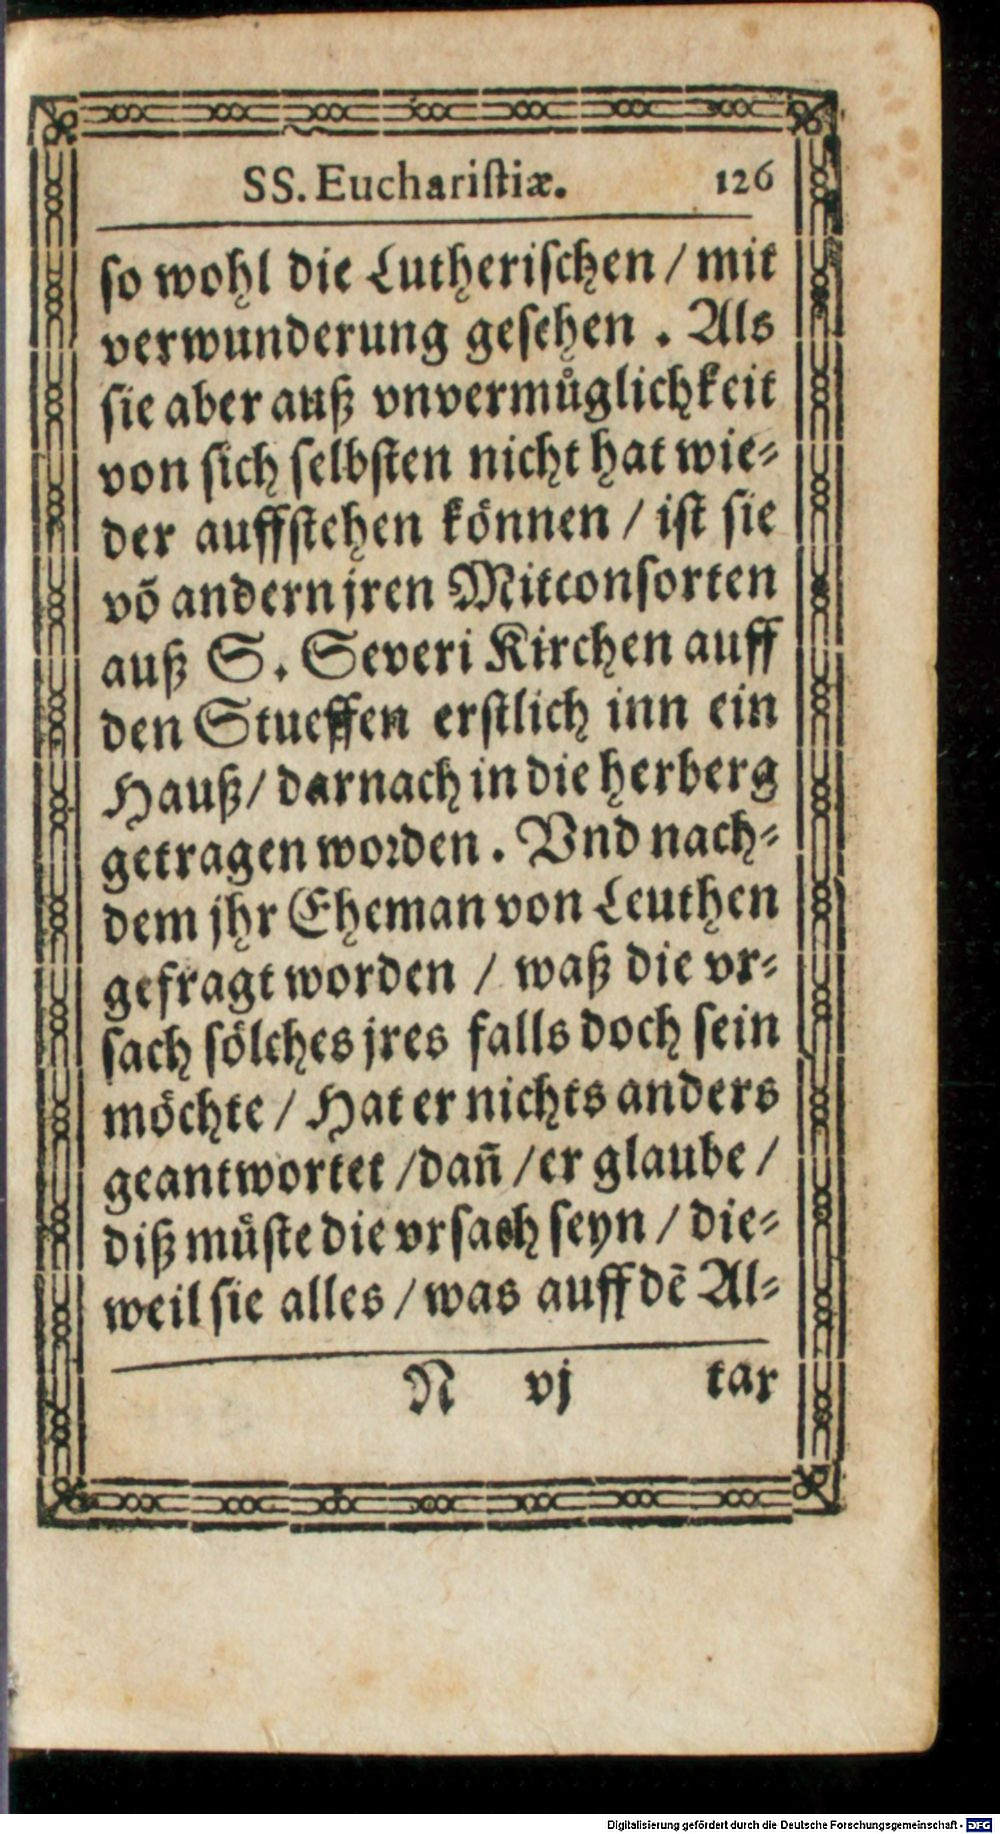 SS. Euchariſtiæ. 126
ſo wohl die Lutheriſchen / mit
verwunderung geſehen . Als
ſie aber auß vnvermuͤglichkeit
von ſich ſelbſten nicht hat wie⸗
der auffſtehen können / iſt ſie
võ andern jren Mitconſorten
auß S. Severi Kirchen auff
den Stueffen erſtlich inn ein
Hauß / darnach in die herberg
getragen worden . Vnd nach⸗
dem jhr Eheman von Leuthen
gefragt worden / waß die vr⸗
ſach ſölches jres falls doch ſein
möchte / Hat er nichts anders
geantwortet / dañ / er glaube /
diß muͤſte die vrſach ſeyn / die⸗
weil ſie alles / was auff dẽ Al⸗
N vj tar
Digitalisierung gefördert durch die Deutsche Forschungsgemeinschaft - DFG